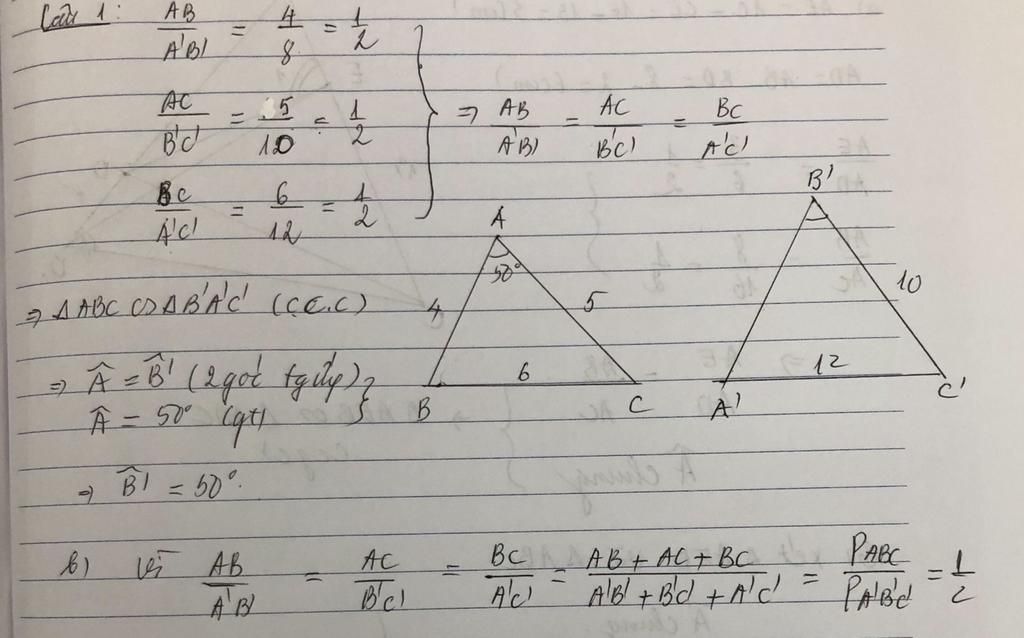 Câu 1: AB/A'B' = 4/8 = 1/2
AC/B'C' = 5/10 = 1/2
BC/A'C' = 6/12 = 1/2
⇒ AB/A'B' = AC/B'C' = BC/A'C'
A
50°
4
5
6
B
C
B'
10
12
A'
C'
⇒ ΔABC ∽ ΔB'A'C' (c.c.c)
⇒ Â = B̂' (2 góc tg ứng)
Â = 50° (gt)
⇒ B̂' = 50°.
b) Vì AB/A'B' = AC/B'C' = BC/A'C' = (AB + AC + BC)/(A'B' + B'C' + A'C') = P_ABC/P_A'B'C' = 1/2